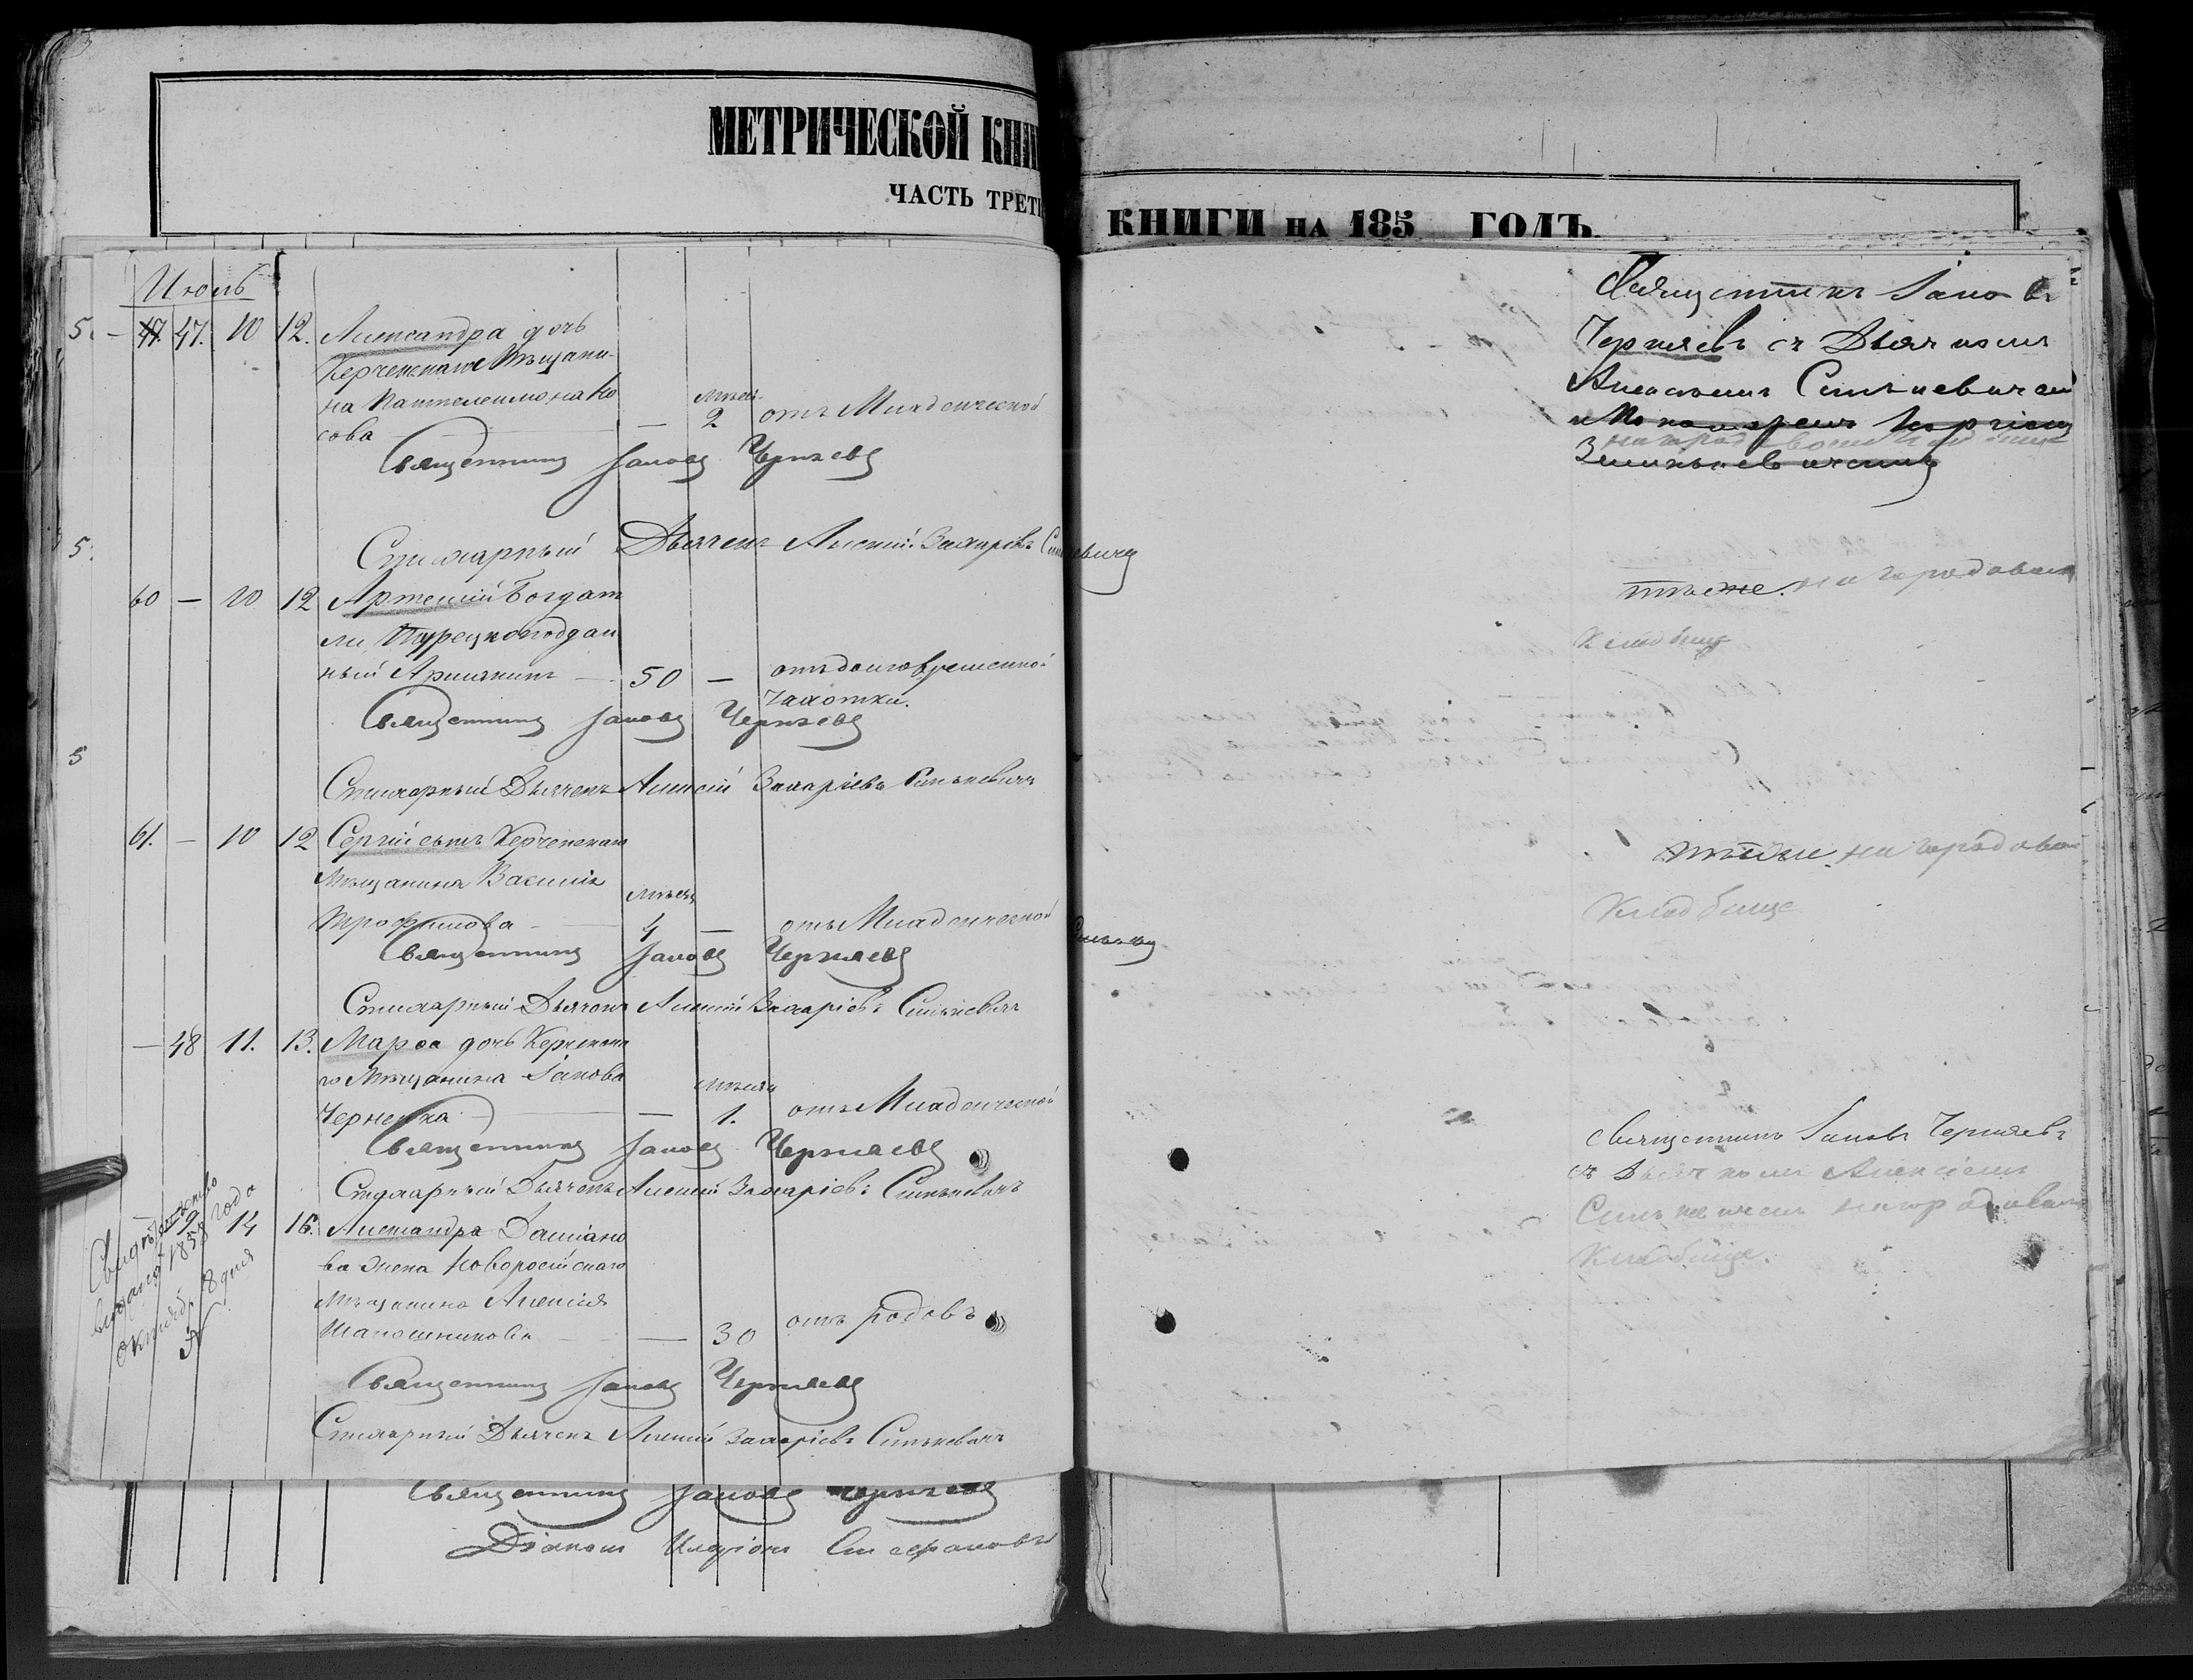 МЕТРИЧЕСКОЙ КНИ
ЧАСТЬ ТРЕТ
Июль
5. – 47. 47. 10 12. Александра дочь
Керченскаго Мѣщани-
на Пантелеимона Ко
сова — — мѣсяц. 2 отъ Младенческой
Священникъ Іаковъ Черняевъ
5. Стихарный Дьячекъ Алексій Захаріевъ Синькевичъ
60 — 10 12 Артемій Богдат
ли Турецкоподдан
ный Армянинъ — 50 — отъ долговременной
чахотки.
Священникъ Іаковъ Черняевъ
5
Стихарный Дьячекъ Алексій Захаріевъ Синькевичъ
61. — 10 12 Сергій сынъ Керченскаго
Мѣщанина Василія
Трофимова — мѣсяц 4 — отъ Младенческой
Священникъ Іаковъ Черняевъ
Стихарный Дьячекъ Алексій Захаріевъ Синькевичъ
— 48 11. 13. Марѳа дочь Керченска
го Мѣщанина Іакова
Черненка — — мѣсяц 1. отъ Младенческой
Священникъ Іаковъ Черняевъ
Стихарный Дьячекъ Алексій Захаріевъ Синькевичъ
14 16. Александра Даміано
ва жена Новоросійскаго
Мѣщанина Алексія
Шапошникова — — 30 отъ родовъ
Священникъ Іаковъ Черняевъ
Стихарный Дьячекъ Алексій Захаріевъ Синькевичъ
Свидѣтельство
выдано 1858 года
октяб. 8 дня
Священникъ Іаковъ Черняевъ
Діаконъ Стефановъ
КНИГИ НА 185 ГОДЪ.
Священникъ Іаковъ
Черняевъ съ Дьячкомъ
Алексѣемъ Синькевичемъ
тѣже. на городовомъ
Кладбищѣ
тѣже. на городовом
Кладбище
Священникъ Іаковъ Черняевъ
съ Дьячкомъ Алексіемъ
Синькевичемъ на городовомъ
Кладбище.